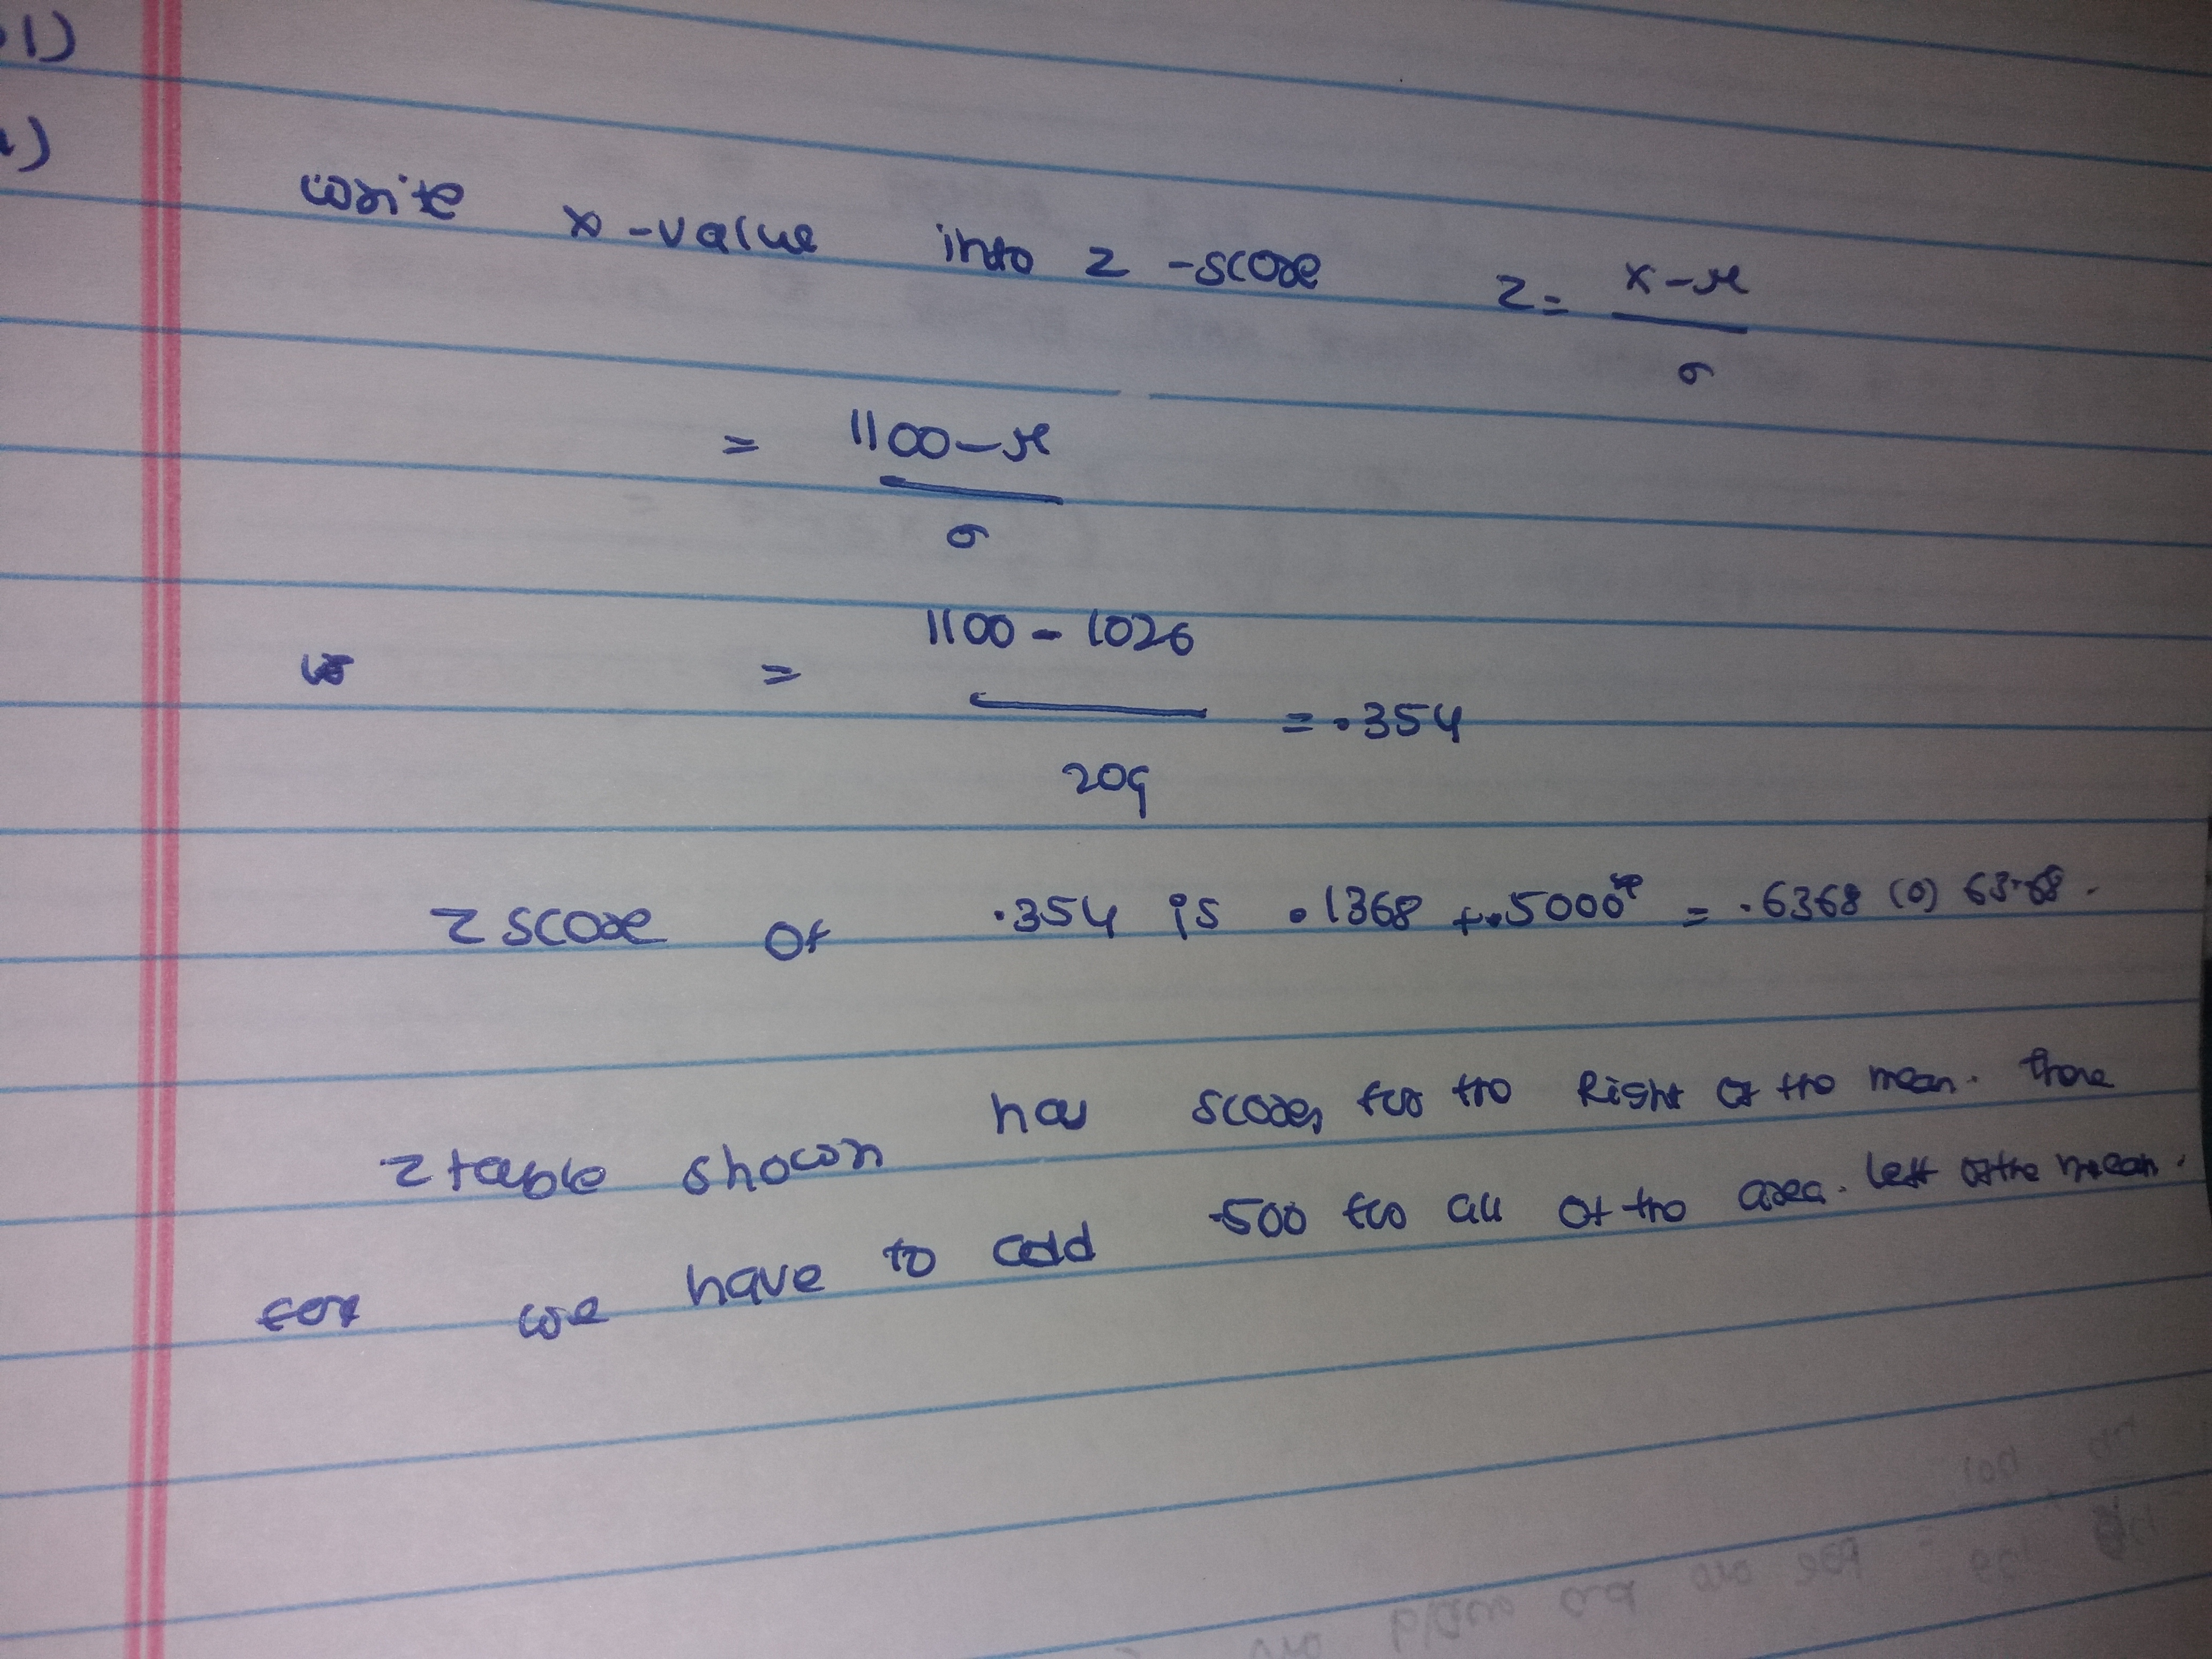 1)
write x-value into z-score z = x-μ
σ
= 1100-μ
σ
= 1100 - 1026
209
= .354
z score of .354 is .1368 + .5000 = .6368 (o) 63.68.
z table shown has scores for the Right of the mean. there
for we have to add .500 for all of the area. left of the mean.